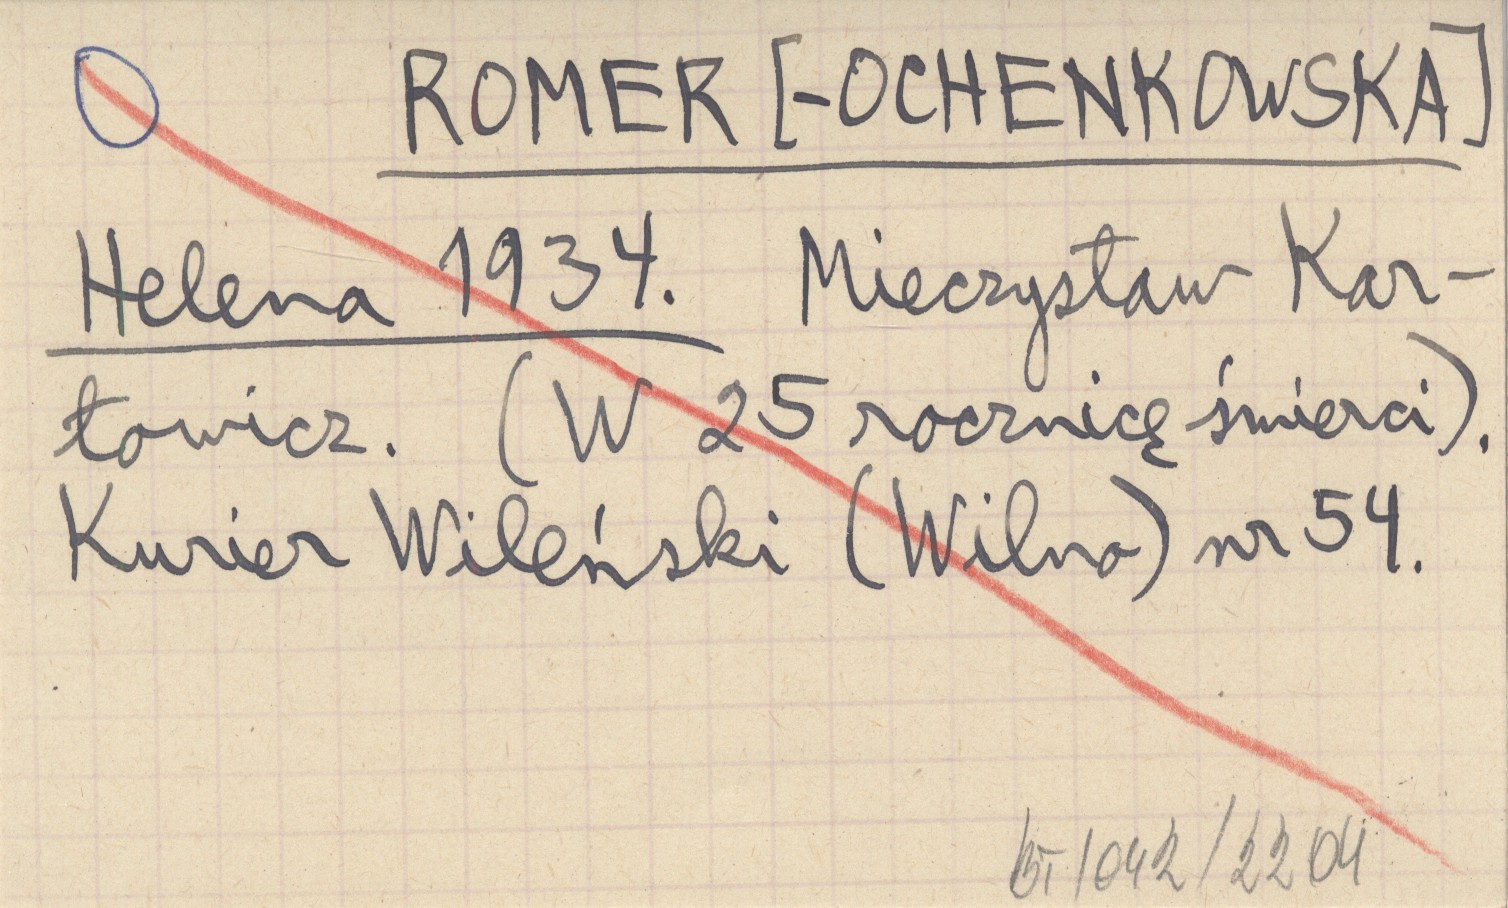 ROMER [-OCHENKOWSKA]
Helena 1934. Mieczysław Kar-
łowicz. (W 25 rocznicę śmierci).
Kurier Wileński (Wilno) nr 54.
1042/2204